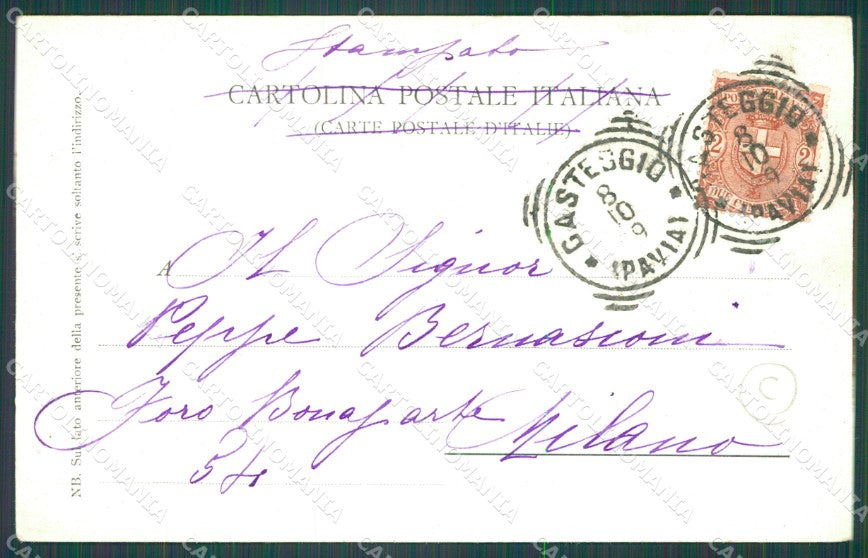 Stampato
CARTOLINA POSTALE ITALIANA
(CARTE POSTALE D'ITALIE)
CASTEGGIO
8
10
9
(PAVIA)
CASTEGGIO
8
10
9
(PAVIA)
2
2
A Il Signor
Peppe Bernasconi
Foro Bonaparte Milano
54
NB. Sul lato anteriore della presente si scrive soltanto l'indirizzo.
C
CARTOLINOMANIA